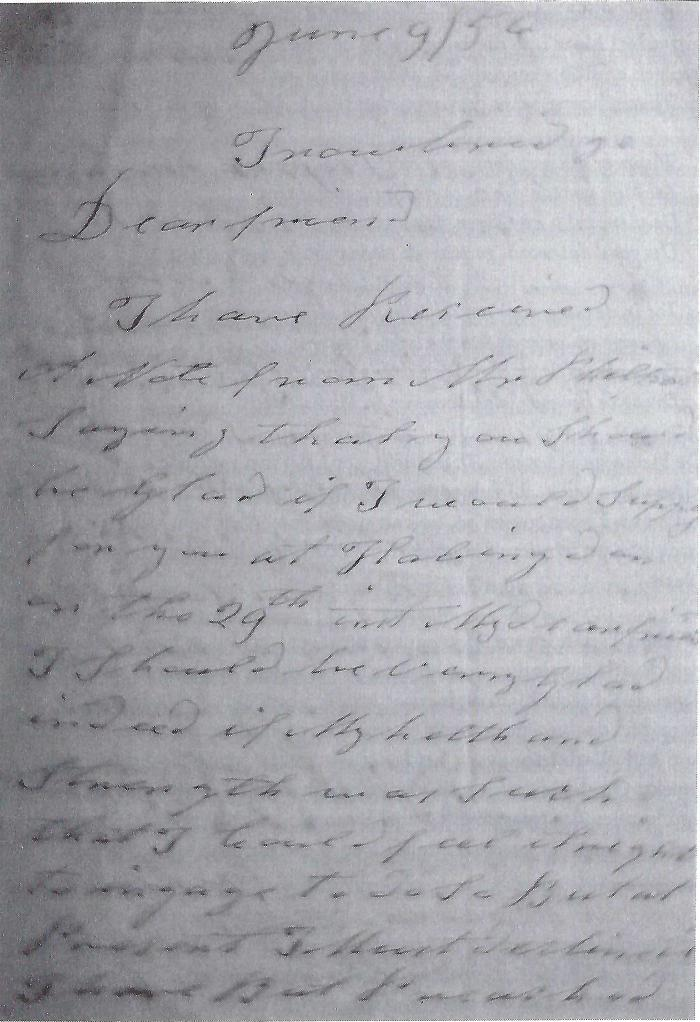 June 9/56
Trowbridge
Dear friend
I have Received
A Note from Mr
Saying that you Should
be Glad if I would Supply
for you at Abingdon
on the 29th inst My dear friend
I Should be very Glad
indeed if My helth and
Strength was Such
that I Could feel it right
to ingage to do So But at
Present I Must decline
I have But Preached